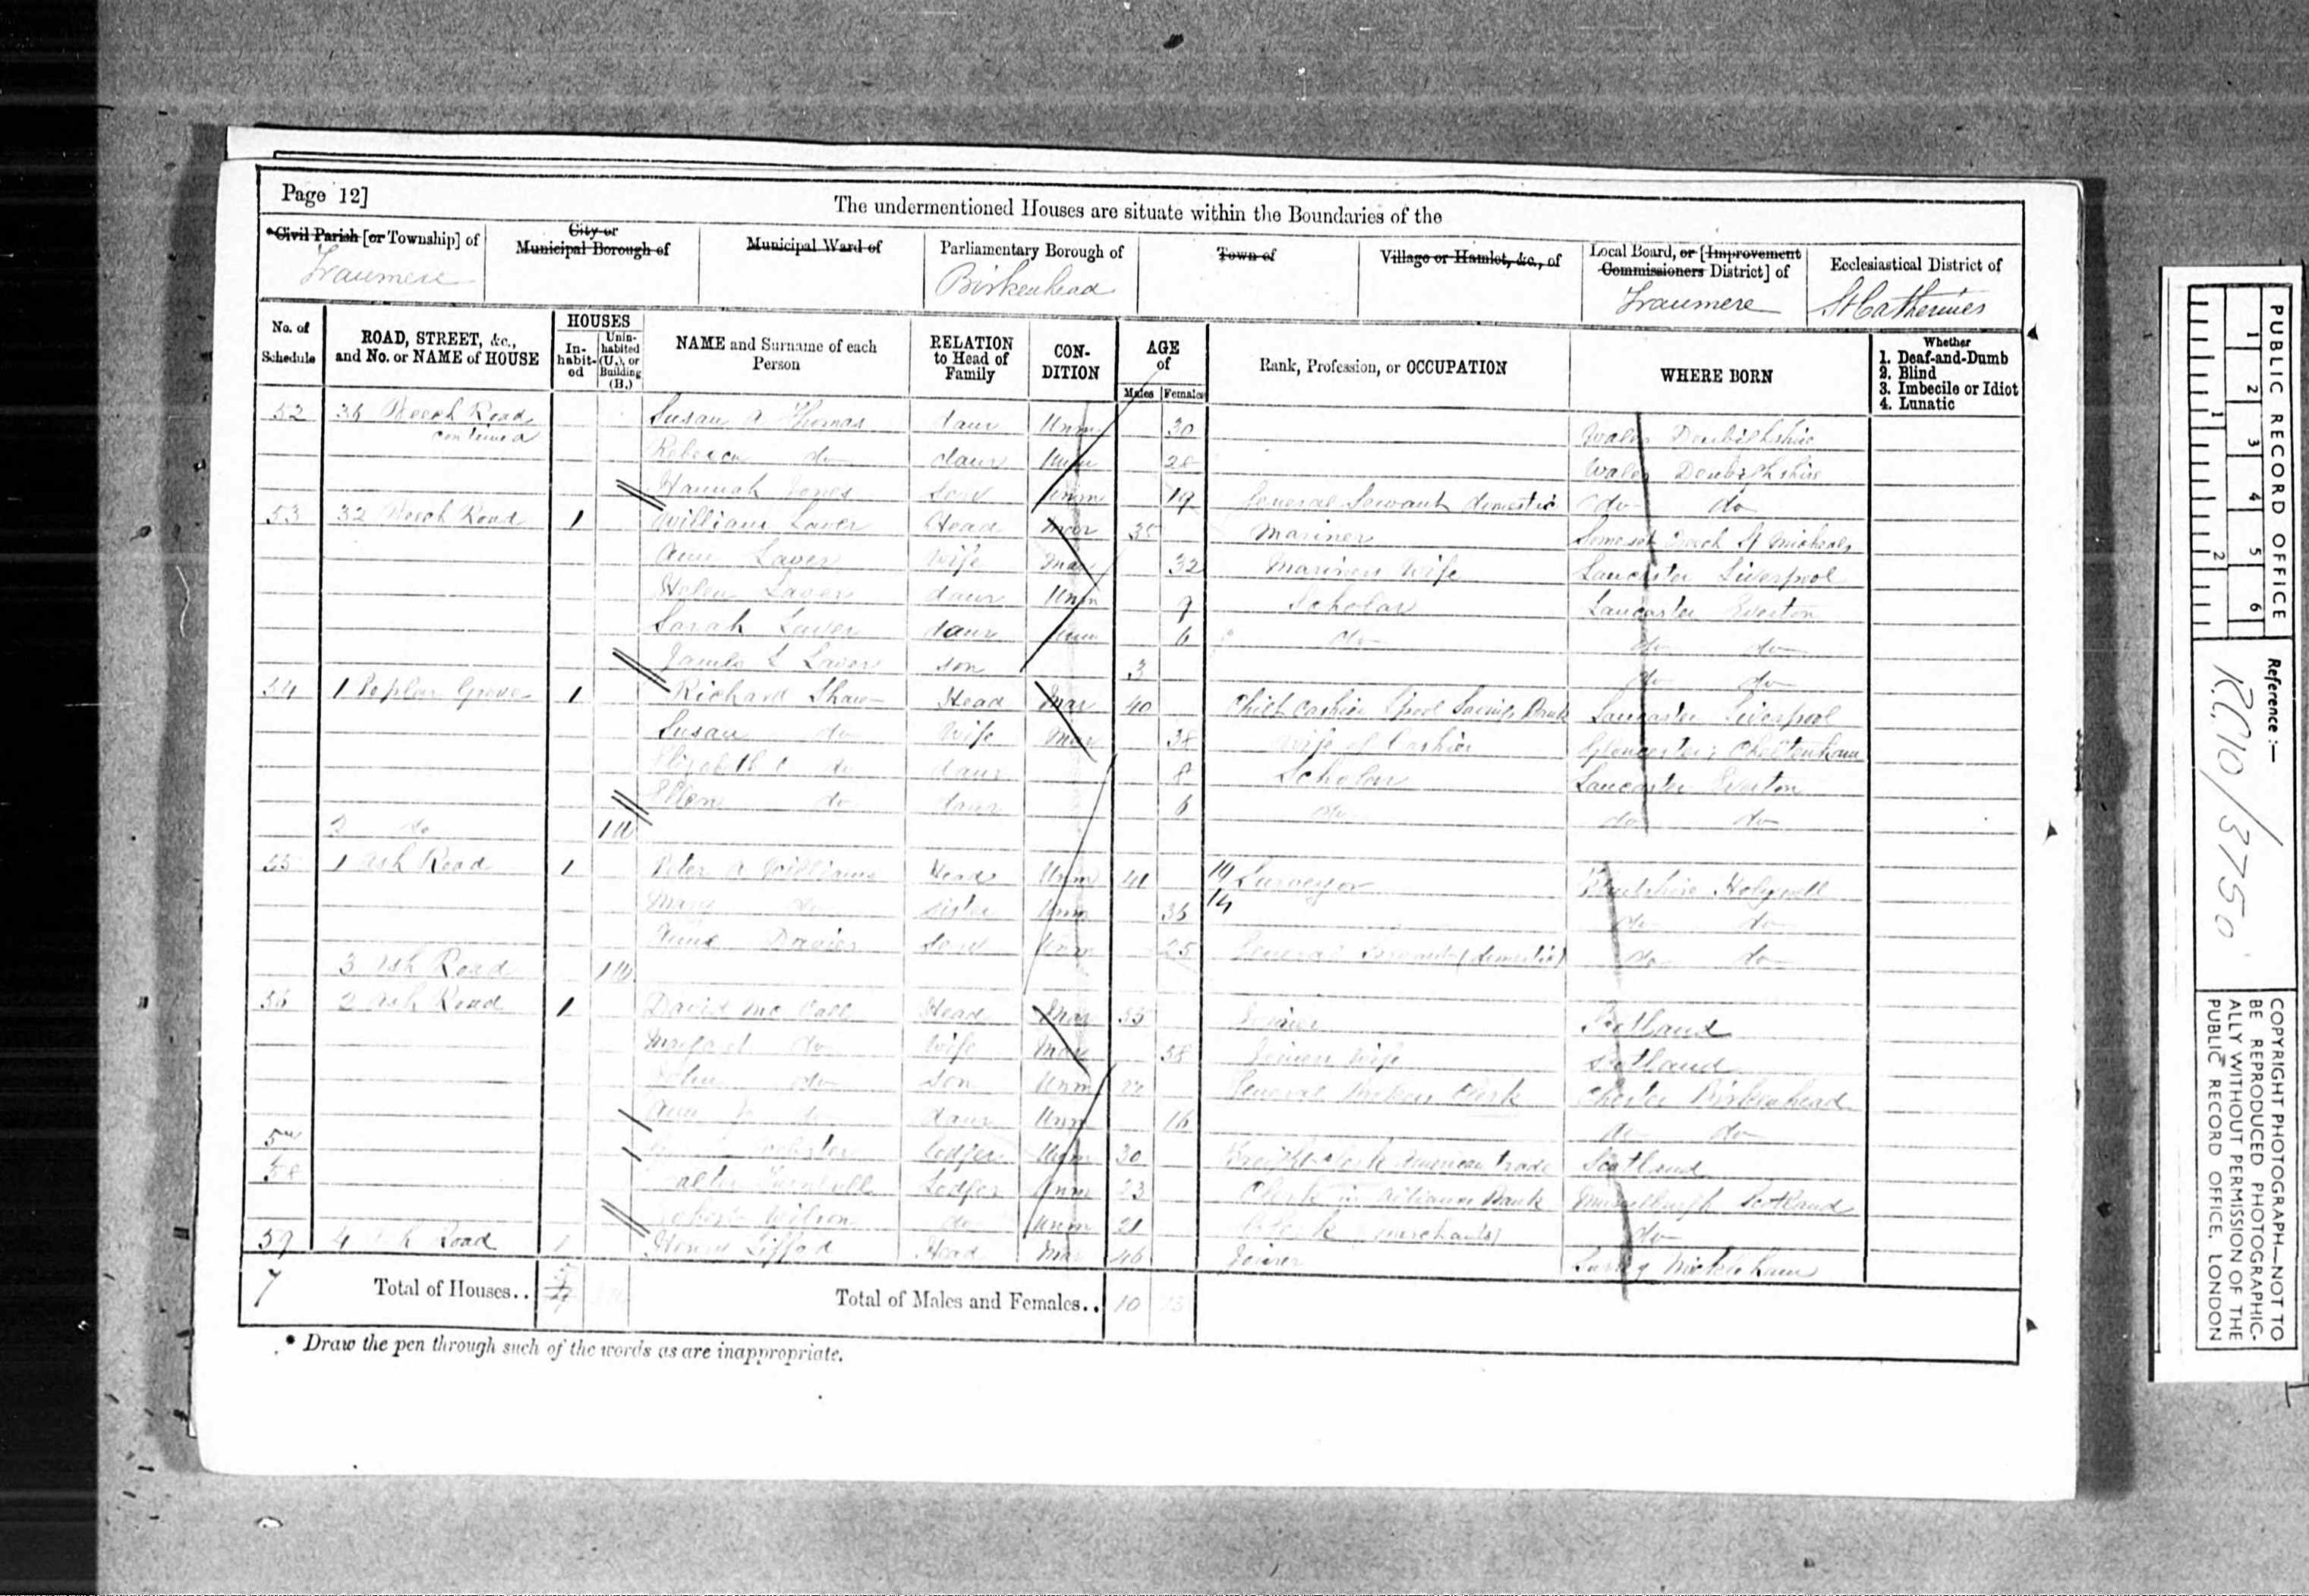 Page 12]
The undermentioned Houses are situate within the Boundaries of the
*Civil Parish [or Township] of
City or Municipal Borough of
Municipal Ward of
Parliamentary Borough of
Town of
Village or Hamlet, &c., of
Local Board, or [Improvement Commissioners District] of
Ecclesiastical District of
Tranmere
Birkenhead
Tranmere
St Catherines
No. of Schedule
ROAD, STREET, &c., and No. or NAME of HOUSE
HOUSES
In-habit-ed
Unin-habited (U.), or Building (B.)
NAME and Surname of each Person
RELATION to Head of Family
CON-DITION
AGE of
Males
Females
Rank, Profession, or OCCUPATION
WHERE BORN
Whether
1. Deaf-and-Dumb
2. Blind
3. Imbecile or Idiot
4. Lunatic
52 36 Beech Road Susan A Thomas daur Unm 30 Wales Denbighshire
continued
Rebecca do daur Unm 28 Wales Denbighshire
Hannah Jones Serv Unm 19 General Servant domestic do do
53 32 Beech Road 1 William Laver Head Mar 35 Mariner Somerset St Micheals
Ann Laver Wife Mar 32 Mariners Wife Lancaster Liverpool
Helen Laver daur Unm 9 Scholar Lancaster Everton
Sarah Laver daur Unm 6 do do do
James L Laver son 3 do do
54 1 Poplar Grove 1 Richard Shaw Head Mar 40 Chief Cashier Lpool Savings Bank Lancaster Liverpool
Susan do Wife Mar 38 Wife of Cashier Gloucester Cheltenham
Elizabeth C do daur 8 Scholar Lancaster Everton
Ellen do daur 6 do do do
3 do 1 U
55 1 Ash Road 1 Peter A Williams Head Unm 41 Surveyor Flintshire Holywell
Mary do Sister Unm 36 do do
Anne Davies Serv Unm 25 General Servant (domestic) do do
3 Ash Road 1 U
56 2 Ash Road 1 David Mc Call Head Mar 55 Joiner Scotland
Margaret do Wife Mar 58 Joiners Wife Scotland
John do Son Unm 22 General Brokers Clerk Chester Birkenhead
Ann do daur Unm 16 do do
57 Webster Lodger Unm 30 Freight Clerk American trade Scotland
58 Turnbull Lodger Unm 23 Clerk in Alliance Bank Musselburgh Scotland
Robert Wilson do Unm 21 Clerk (merchants) do
59 4 Ash Road 1 Henry Head Mar 46 Joiner Surrey Mickleham
7
Total of Houses..
Total of Males and Females.. 10 13
* Draw the pen through such of the words as are inappropriate.
PUBLIC RECORD OFFICE
1 2 3 4 5 6
1 2
Reference :—
R.G.10/3750
COPYRIGHT PHOTOGRAPH—NOT TO
BE REPRODUCED PHOTOGRAPHIC-
ALLY WITHOUT PERMISSION OF THE
PUBLIC RECORD OFFICE, LONDON